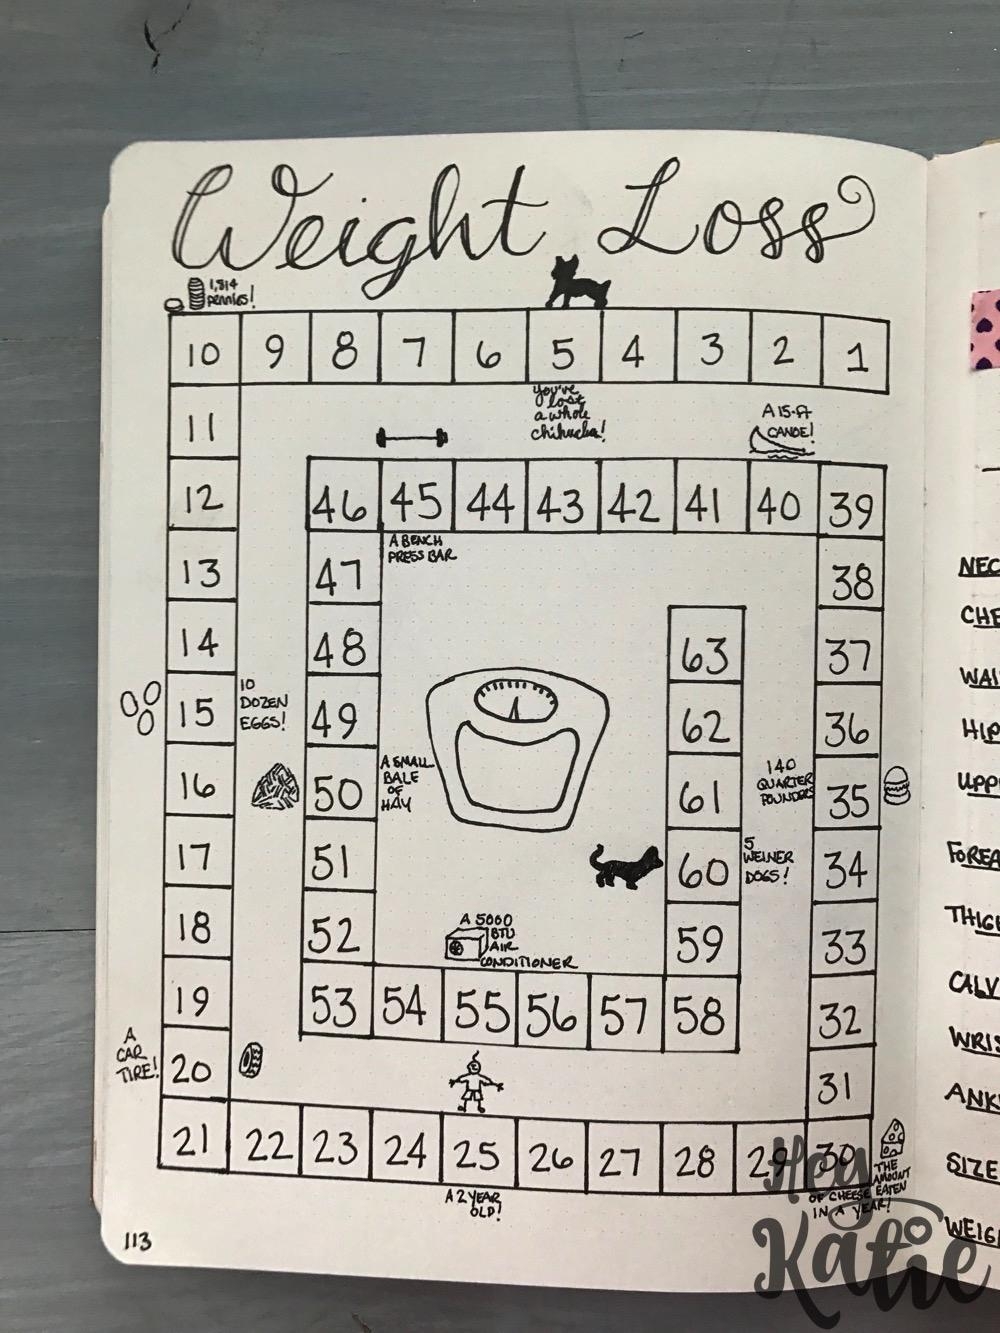 Weight Loss
1,814
pennies!
10 9 8 7 6 5 4 3 2 1
You've
lost
a whole
chihuahua!
A 15-ft
CANOE!
11
12
13
14
15
16
17
18
19
20
21 22 23 24 25 26 27 28 29 30
31
32
33
34
35
36
37
38
39
46 45 44 43 42 41 40
A BENCH
PRESS BAR
47
48
49
50
51
52
53 54 55 56 57 58
59
60
61
62
63
10
DOZEN
EGGS!
A SMALL
BALE
OF
HAY
140
QUARTER
POUNDERS
5
WEINER
DOGS!
A 5000
BTU
AIR
CONDITIONER
A
CAR
TIRE!
A 2 YEAR
OLD!
THE
AMOUNT
OF CHEESE EATEN
IN A YEAR!
113
NEC
CHE
WAI
HIP
UPP
FOREA
THIG
CALV
WRIS
ANK
SIZE
WEIG
Hey
Katie